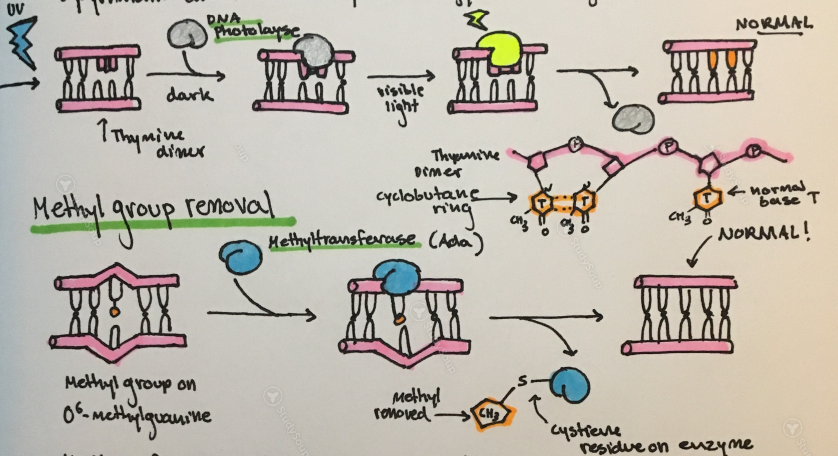 UV
DNA
Photolayse
NORMAL
dark
visible
light
↑ Thymine
dimer
Thymine
Dimer
P
P
P
cyclobutane
ring
T
T
T
CH3
O
CH3
O
CH3
O
normal
base T
NORMAL!
Methyl group removal
Methyltransferase (Ada)
Methyl group on
O6-Methylguanine
Methyl
removed
CH3
S
cysteine
residue on enzyme